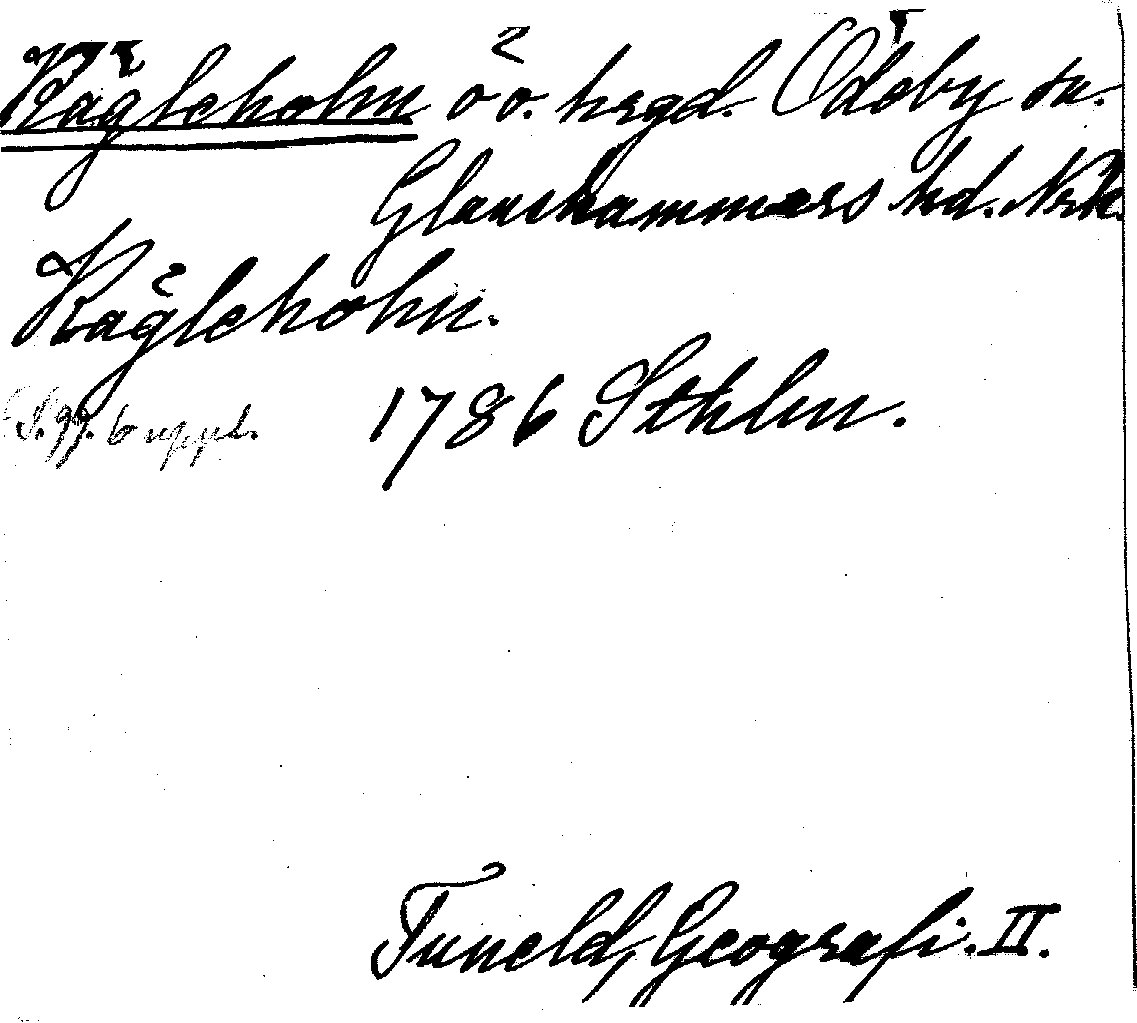 Kägleholm ö o. hrgd. Ödeby sn.
Glanshammars hd. Nrk.
Kågleholm.
S. 99. 6 uppl. 1786 Sthlm.
Tuneld, Geografi. II.